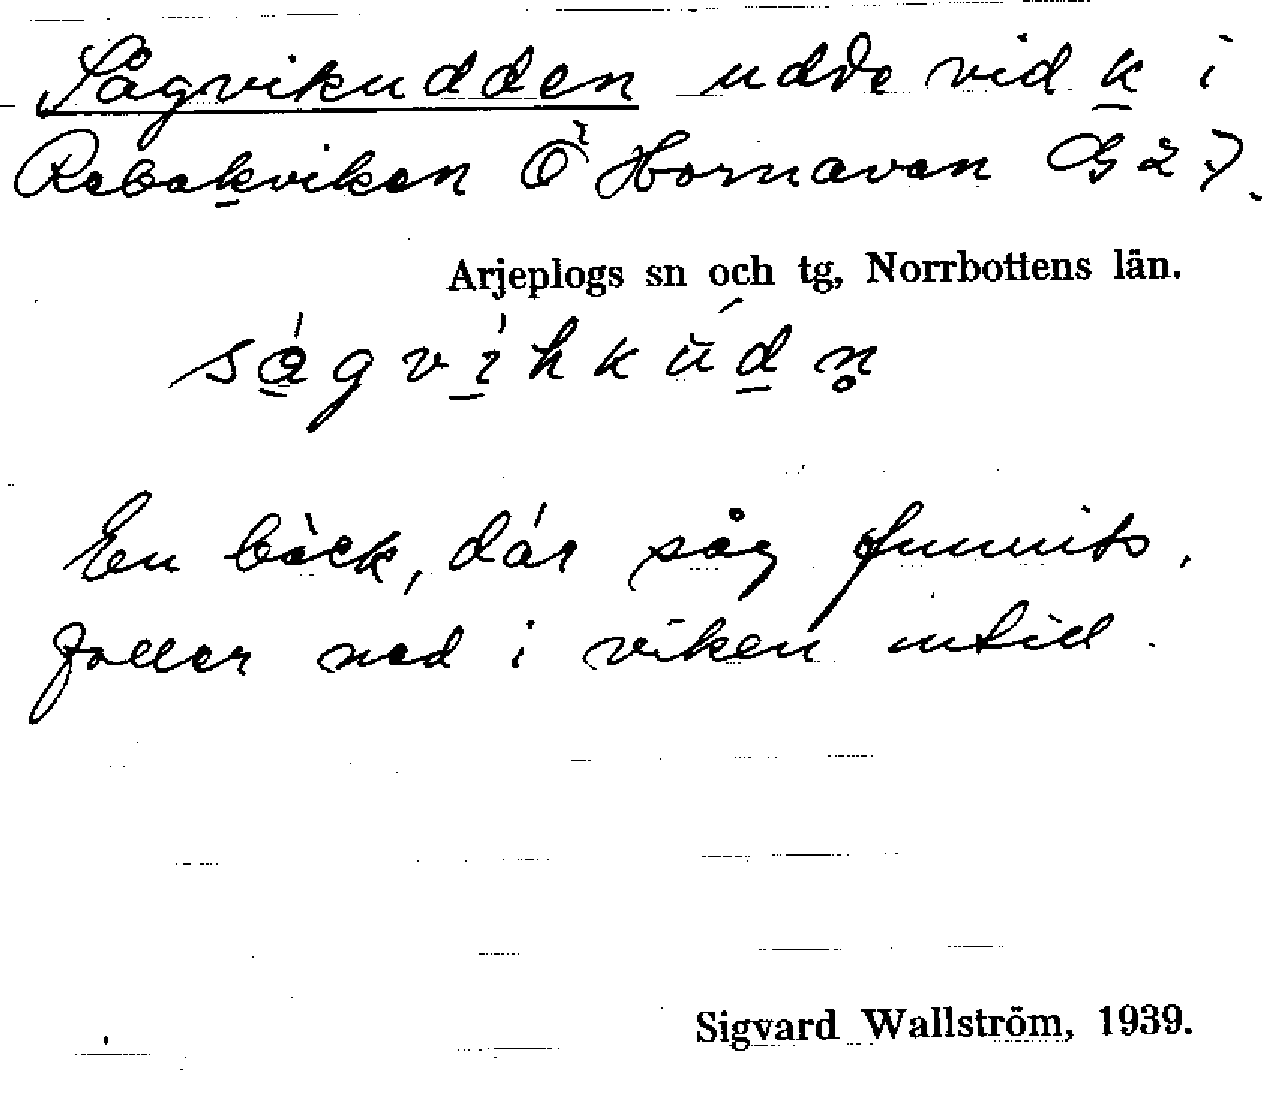 Sågvikudden udde vid k i
Rebakviken Ö Hornavan G 27.
Arjeplogs sn och tg, Norrbottens län.
ságvíhkúdn̥
En bäck, där såg funnits,
faller ned i viken intill.
Sigvard Wallström, 1939.